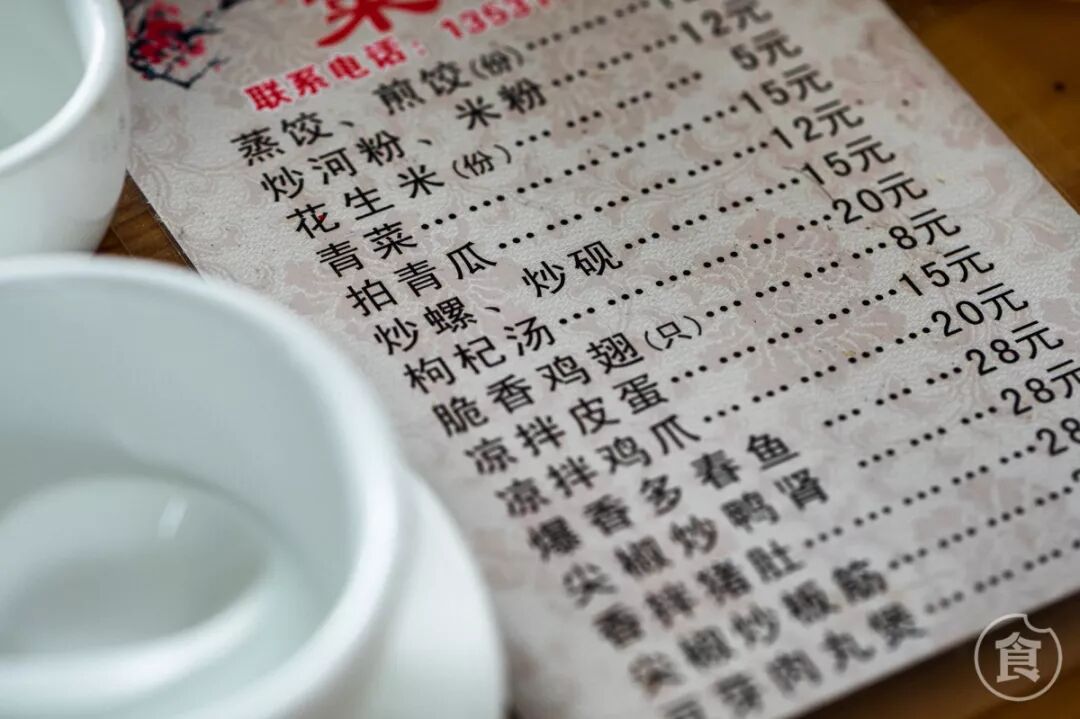 菜
联系电话：13537
蒸饺、煎饺(份)……
炒河粉、米粉……12元
花生米(份)……5元
青菜……15元
拍青瓜……12元
炒螺、炒砚……15元
枸杞汤……20元
脆香鸡翅(只)……8元
凉拌皮蛋……15元
凉拌鸡爪……20元
爆香多春鱼……28元
尖椒炒鸭肾……28元
香拌猪肚……28
尖椒炒板筋……
芽肉丸煲……
食